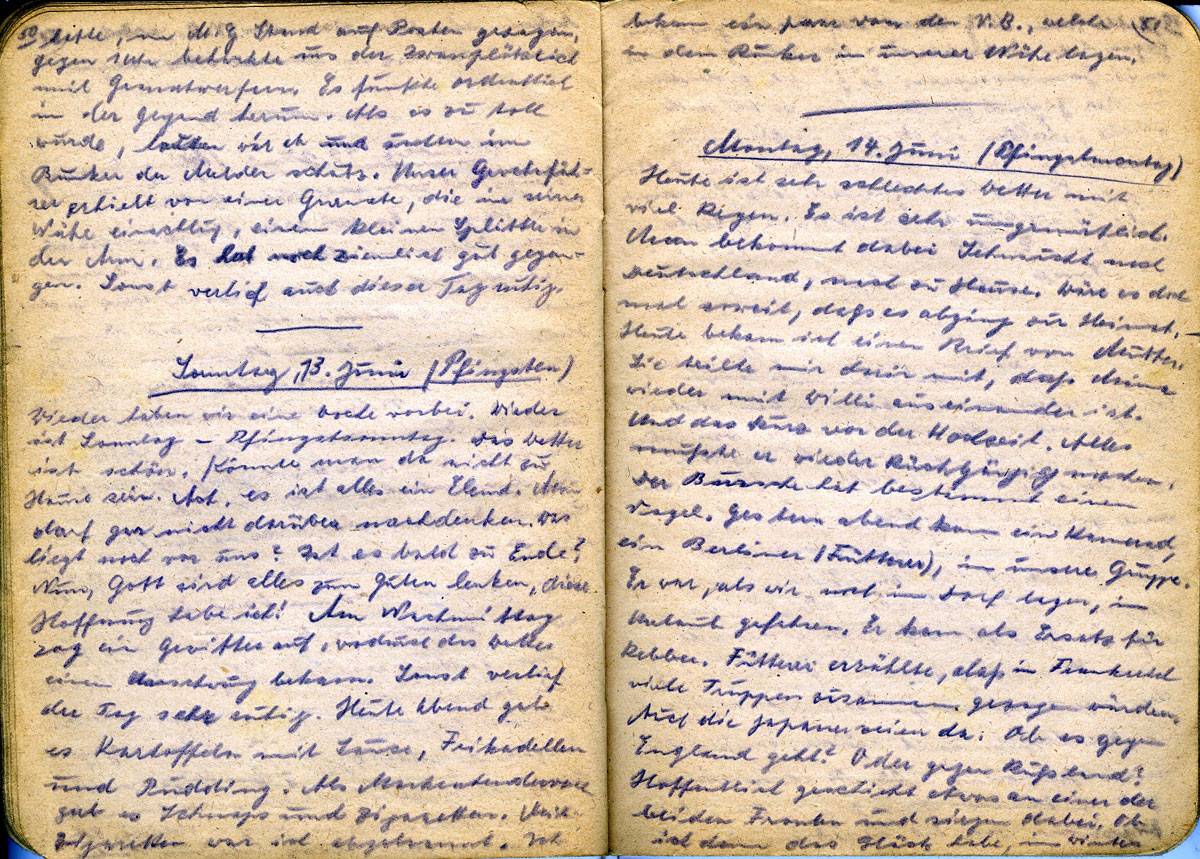 50
bitte, im M.G. Stand auf Posten gezogen,
gegen Uhr behackte uns der Iwan plötzlich
mit Granatwerfern. Es funkte ordentlich
in der Gegend herum. Als es zu toll
wurde, wir und im
Bunker der Melder schutz. Unser Gewehrfüh-
rer erhielt von einer Granate, die in seiner
Nähe einschlug, einen kleinen Splitter in
den Arm. Es hat noch ziemlich gut gegan-
gen. Sonst verlief auch dieser Tag ruhig.
Sonntag, 13. Juni (Pfingsten)
Wieder haben wir eine Woche vorbei. Wieder
ist Sonntag – Pfingstsonntag. Das Wetter
ist schön. Könnte man da nicht zu
Hause sein. Ach, es ist alles ein Elend. Man
darf gar nicht darüber nachdenken. Was
liegt noch vor uns? Ist es bald zu Ende?
Nun, Gott wird alles zum Guten lenken, diese
Hoffnung habe ich! Am Nachmittag
zog ein Gewitter auf, wodurch das Wetter
einen bekam. Sonst verlief
der Tag sehr ruhig. Heute Abend gab
es Kartoffeln mit Sauce, Frikadellen
und Pudding. Als Marketenderware
gab es Schnaps und Zigaretten. Mit
Zigaretten war ich abgebrannt. Ich
51
bekam ein paar von den V.B., welche
in dem Bunker in unserer Nähe lagen.
Montag, 14. Juni (Pfingstmontag)
Heute ist sehr schlechtes Wetter mit
viel Regen. Es ist sehr ungemütlich.
Man bekommt dabei Sehnsucht nach
Deutschland, nach zu Hause. Wäre es doch
mal soweit, daß es abging zur Heimat. –
Heute bekam ich einen Brief von Mutter.
Sie teilte mir darin mit, daß
wieder mit Willi auseinander ist.
Und das kurz vor der Hochzeit. Alles
mußte er wieder rückgängig machen.
Der Bursche hat bestimmt einen
Vogel. Gestern abend kam ein Kamerad,
ein Berliner (Fütterer), in unsere Gruppe.
Er war, als wir noch im Dorf lagen, in
Urlaub gefahren. Er kam als Ersatz für
Kebber. Fütterer erzählte, daß in Frankreich
viele Truppen zusammen gezogen würden.
Auch die Japaner seien da. Ob es gegen
England geht? Oder gegen Rußland?
Hoffentlich geschieht etwas an einer der
beiden Fronten und siegen dabei. Ob
ich dann das Glück habe, im Winter